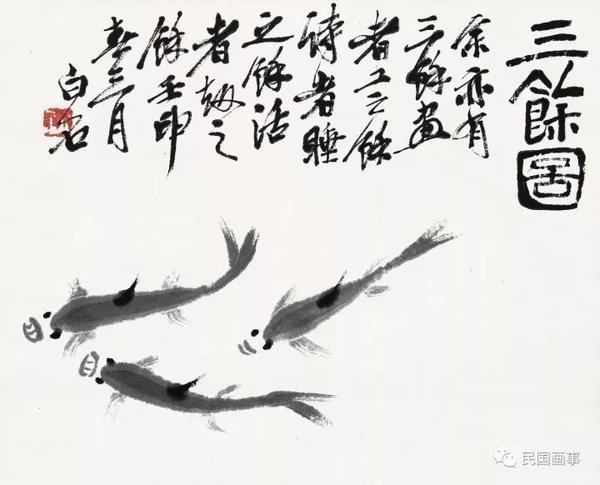 三餘圖
余亦有
三餘畫
者工之餘
詩者睡
之餘活
者劫之
餘壬申
春三月
白石
民国画事